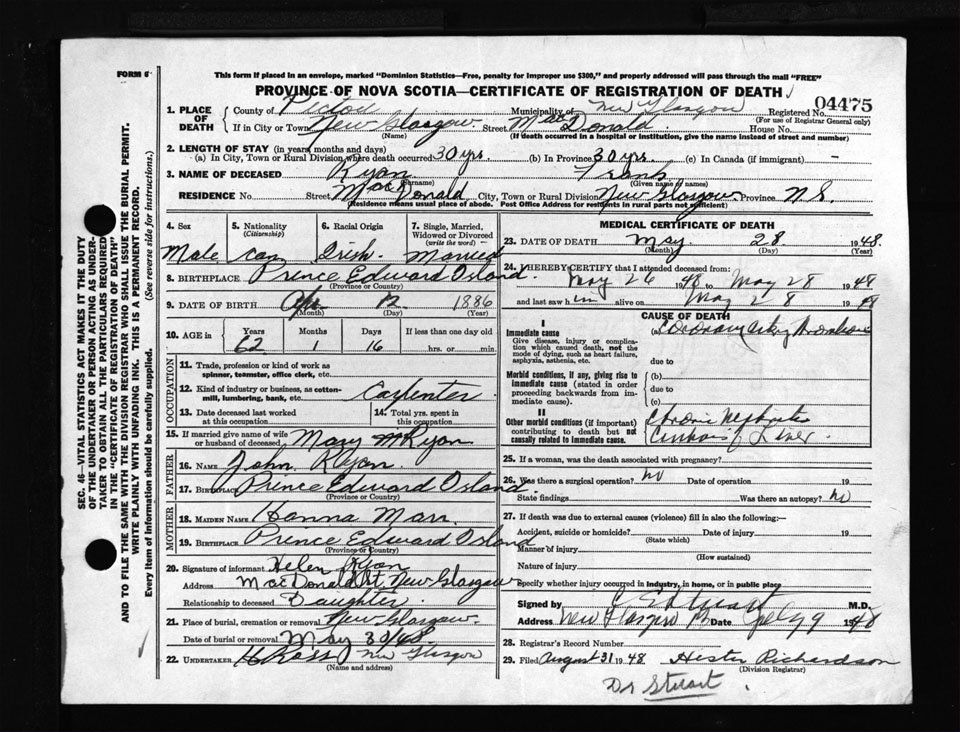 FORM 6
This form if placed in an envelope, marked "Dominion Statistics—Free, penalty for improper use $300," and properly addressed will pass through the mail "FREE"
PROVINCE OF NOVA SCOTIA—CERTIFICATE OF REGISTRATION OF DEATH
04475
1. PLACE OF DEATH County of Pictou Municipality of New Glasgow Registered No.
(For use of Registrar General only)
If in City or Town New Glasgow Street MacDonald House No.
(Name) (If death occurred in a hospital or institution, give the name instead of street and number)
2. LENGTH OF STAY (in years, months and days)
(a) In City, Town or Rural Division where death occurred 30 yrs (b) In Province 30 yrs. (c) In Canada (if immigrant) —
3. NAME OF DECEASED Ryan Frank
(Surname) (Given name or names)
RESIDENCE No. Street MacDonald City, Town or Rural Division New Glasgow Province N.S.
(Residence means usual place of abode. Post Office Address for residents in rural parts not sufficient)
4. Sex 5. Nationality (Citizenship) 6. Racial Origin 7. Single, Married, Widowed or Divorced (write the word)
Male Can Irish. Married
8. BIRTHPLACE Prince Edward Island.
(Province or Country)
9. DATE OF BIRTH Apr 12 1886
(Month) (Day) (Year)
10. AGE in Years Months Days If less than one day old
62 1 16 hrs. or min.
OCCUPATION
11. Trade, profession or kind of work as spinner, teamster, office clerk, etc.
12. Kind of industry or business, as cotton-mill, lumbering, bank, etc. Carpenter
13. Date deceased last worked at this occupation 14. Total yrs. spent in this occupation
15. If married give name of wife or husband of deceased Mary Ryan
FATHER
16. NAME John Ryan.
17. BIRTHPLACE Prince Edward Island.
(Province or Country)
MOTHER
18. MAIDEN NAME Hanna Marr.
19. BIRTHPLACE Prince Edward Island
(Province or Country)
20. Signature of informant Helen Ryan
Address MacDonald St, New Glasgow
Relationship to deceased Daughter.
21. Place of burial, cremation or removal New Glasgow.
Date of burial or removal May 30/48
22. UNDERTAKER H Ross New Glasgow
(Name and address)
MEDICAL CERTIFICATE OF DEATH
23. DATE OF DEATH May. 28. 1948.
(Month) (Day) (Year)
24. I HEREBY CERTIFY that I attended deceased from:
May 26 1948 to May 28 1948
and last saw him alive on May 28 1948
CAUSE OF DEATH
I
Immediate cause (a) Coronary artery thrombosis
Give disease, injury or complication which caused death, not the mode of dying, such as heart failure, asphyxia, asthenia, etc. due to
Morbid conditions, if any, giving rise to immediate cause (stated in order proceeding backwards from immediate cause). (b)
due to
(c)
II
Other morbid conditions (if important) contributing to death but not causally related to immediate cause. Chronic Nephritis
Cirrhosis of Liver.
25. If a woman, was the death associated with pregnancy?
26. Was there a surgical operation? No Date of operation 19
State findings Was there an autopsy? No
27. If death was due to external causes (violence) fill in also the following:—
Accident, suicide or homicide? Date of injury 19
(State which)
Manner of injury
(How sustained)
Nature of injury
Specify whether injury occurred in industry, in home, or in public place
Signed by Stuart M.D.
Address New Glasgow Date 1948
28. Registrar's Record Number
29. Filed August 31 1948 Hester Richardson
(Division Registrar)
Dr Stewart.
SEC. 46—VITAL STATISTICS ACT MAKES IT THE DUTY
OF THE UNDERTAKER OR PERSON ACTING AS UNDER-
TAKER TO OBTAIN ALL THE PARTICULARS REQUIRED
IN THE "CERTIFICATE OF REGISTRATION OF DEATH"
AND TO FILE THE SAME WITH THE DIVISION REGISTRAR WHO SHALL ISSUE THE BURIAL PERMIT.
WRITE PLAINLY WITH UNFADING INK. THIS IS A PERMANENT RECORD.
Every item of information should be carefully supplied. (See reverse side for instructions.)